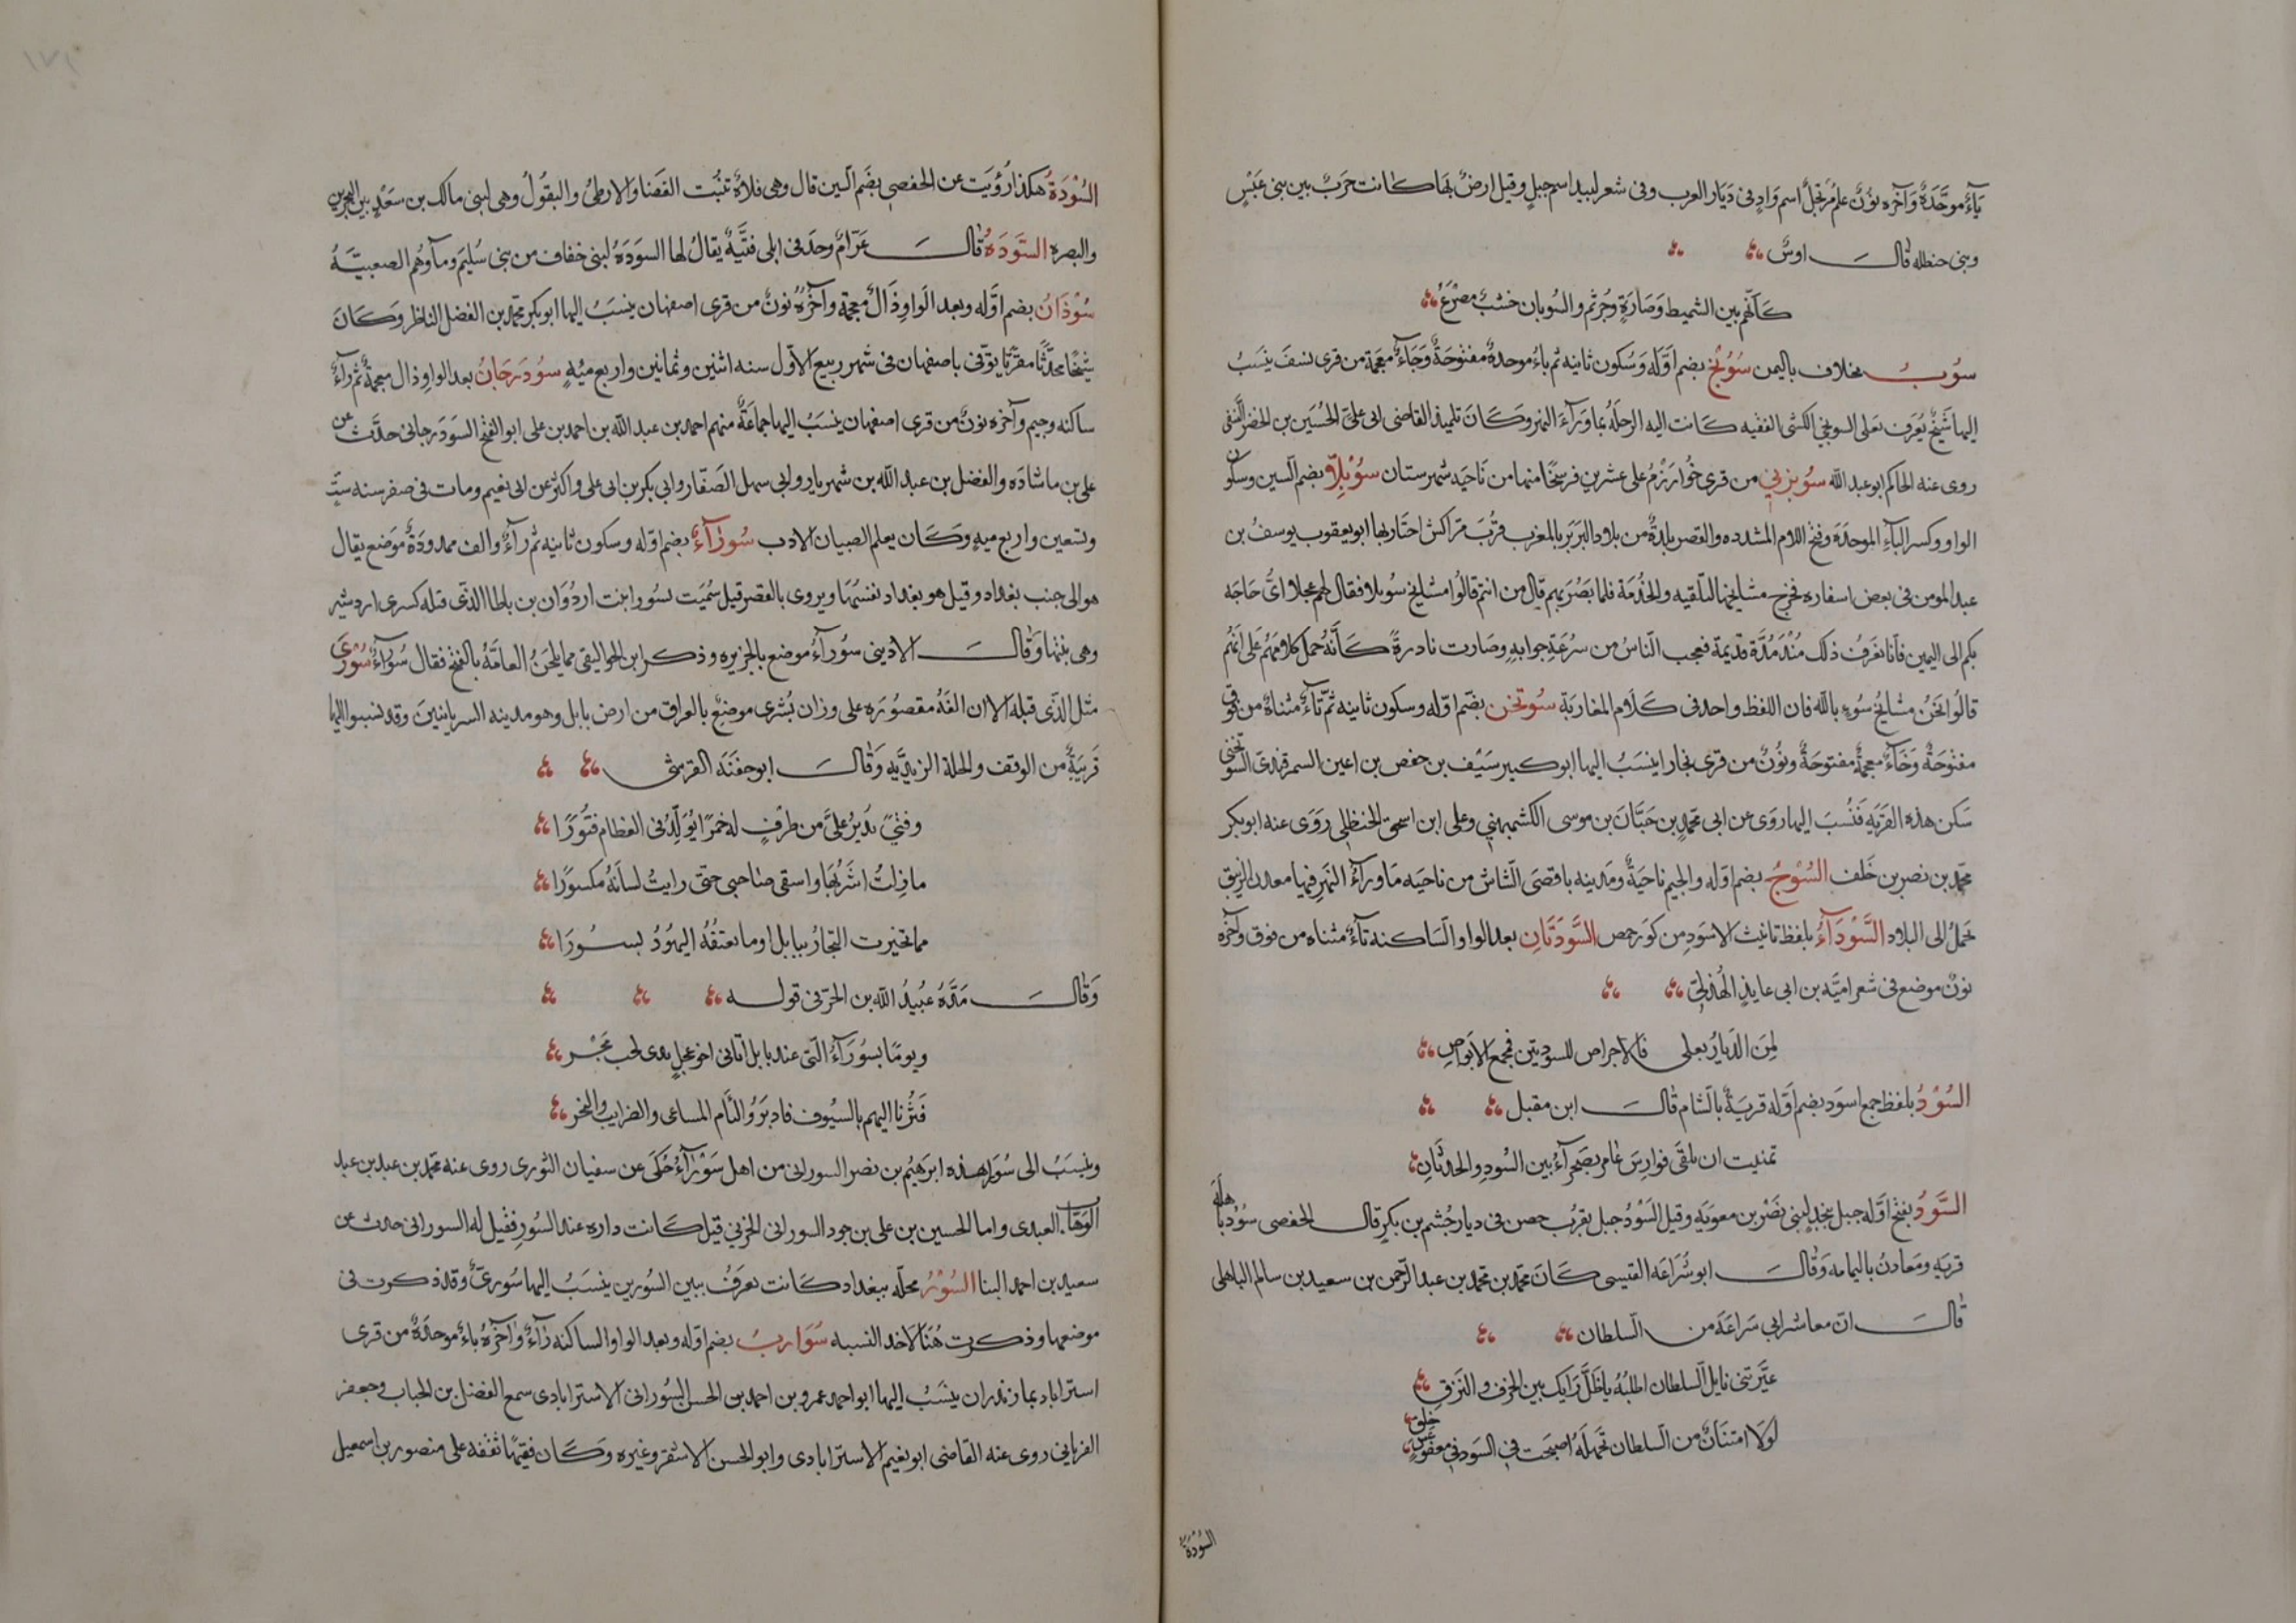 بآءٌ موحَّدَةٌ وَآخره نؤنٌ علمٌ مُرتجَلٌ اسم وَادٍ فى دَيَار العرب وفى شعر لبيد اسم جبلٍ وقيل ارضٌ بهَا كانت حَربٌ بين بنى عَبْسٍ
وبنى حنظله قالَ اوسٌ
كَانّهُم بين الشميط وَصَارَةٍ وَجُرثم والسُوبان خشبٌ مصَرَّعُ
سُوبُ مخلاف باليمن سُوبَخُ بضم اَوّله وَسُكون ثانيه ثم باءٌ موحدةٌ مفتوحَةٌ وَخَآءٌ معجمة من قرى نسفَ ينسَبُ
اليها شَيخٌ يُعرَف بعَلى السوبخى الكشى الفقيه كَانت اليه الرحلَه بما وَرآءَ النهر وَكَانَ تلميذ القاضى ابى علىّ الحُسَين بن الخضر النَّسَفى
روى عنه الحاكم ابو عبد الله سُوبَرنى من قرى خُوارَزم على عشرين فرسخًا منها من نَاحيَه شهرستان سُوبِلّا بضم السين وسكون
الواو وكسر البآءِ الموحدَة وفتح اللام المشدده والقصر بلدةٌ من بلاد البَربَر بالمغرب قربَ مَرّاكش اجتاز بها ابو يعقوب يوسفُ بن
عبد المومن فى بعض اسفاره فخرج مشايخها لتلقيه والخُدمَة فلما بَصُر بهم قال من انتم قالُوا مشايخ سُوبلا فقال لهم عجلا اىُّ حَاجَه
بكم الى اليمين فانا نعرف ذلك مُنذ مُدّة قديمة فعجب الناسُ من سُرعَةِ جوابهِ وصَارت نادرةً كَانَّهُ حمل كلامهُم عَلى انهُم
قالُوا نحَنُ مشايخُ سُوءٍ بالله فان اللفظ واحد فى كَلَام المغَاربَة سُوتخن بضم اوّله وسكون ثانيه ثمّ تآءٌ مثناة من فوق
مفتوحَةٌ وَخَآءٌ معجمةٌ مفتوحَةٌ ونُونٌ من قرى بخارا ينسَبُ اليها ابو كبير سَيْف بن حفص بن اعين السمرقندى السوتخنى
سَكن هذه القريَه فنُسبَ اليها روَى عن ابى محمّدٍ بن حَبَّانَ بن موسى الكشميهنى وعلى ابن اسحق الحنظلى رَوَى عنه ابو بكر
محمّد بن نصر بن خَلف السُوجُ بضم اوّله والجيم ناحيَةٌ ومَدينه باقصَى الشاش من ناحيَه مَا ورآءَ النهرِ فيها معدن الزيبق
تحملُ الى البلاد السَّوْدَآءُ بلفظ تانيث الاسوَدِ من كوَر حمص السَّوْدَتَانِ بعد الواو السَاكنه تآءٌ مثناه من فوق وآخره
نونٌ موضع فى شعر اميَّه بن ابى عايذ الهُذلىّ
لِمَن الدّيَارُ بعلى فالاجراص للسودتين فمجمع الابواصِ
السُوْدُ بلفظ جمع اسوَد بضم اوّله قريَةٌ بالشام قالَ ابن مقبل
تمنيت ان تلقى فوارسَ عامر بصَحرآءٍ بين السُودِ والحدثانِ
السَّوَدُ بفتح اوّله جبل بنجدٍ لبنى نَصْر بن معويَه وقيل السَوْدُ جبل بقربُ حصن فى ديار جُشم بن بكرٍ قال الحفصى سُوْدُ باهلَه
قريَه ومَعادنُ باليمامه وَقالَ ابو شُرَاعَه القيسى كَانَ محمّد بن محمّد بن عبد الرّحمن بن سعيد بن سالم الباهلى
قالَ انّ معاشر ابى شرَاعَه من السلطان
عيَّرَتنى نايل السلطان اطلبُهُ يا ضَلَّ رَايك بين الخرف والنزقِ
لَولَا امتنانٌ من السلطان تجَهَله اصبحَت فى السَود فى معفوعس خلقِ
السُودَة
السُوْدَةُ هكذا رُؤيَت عن الحفصى بضَم السين قال وهى فلاةٌ تنبُت الغضا والارطى والبقُولُ وهى لبنى مالك بن سعْدٍ بين البحرين
والبصره السَّوَدَهُ قالَ عَرّامٌ وحدَ فى ابلى قنَّيةٌ يقالُ لها السوَدَهُ لبنى خفاف من بنى سُليم ومآوهُم الصعبيَّةُ
سُوْذَانُ بضم اوّله وبعد الواو ذَالٌ معجمة وآخُرهُ نونٌ من قرى اصفهان ينسَبُ اليها ابو بكر محمّد بن الفضل الناظر وَكَانَ
شَيْخًا محدّثًا مقرّيًا توَفى باصفهان فى شهر ربيع الاوّل سنه اثنين وثمانين واربع ميَهٍ سُوذَرجَانُ بعد الواو ذال معجمةٌ ثم رآءٌ
ساكنه وجيم وآخره نونٌ من قرى اصفهان ينسَبُ اليها جماعَةٌ منهم احمد بن عبد الله بن احمد بن على ابو الفتح السَوذرجانى حدَّث عن
على بن ماشادَه والفضل بن عبد الله بن شهريار وابى سهل الصَفّار وابى بكر بن ابى على واكثر عن ابى نعيم ومات فى صفر سنه ستٍّ
وتسعين واربع ميهٍ وكَان يعلم الصبيان الادب سُورَآءُ بضم اوّله وسكون ثانيه ثم رآءٌ والف ممدودَةٌ موضع يقال
هو الى جنب بغداد وقيل هو بغداد نفسُهَا ويروى بالقصر قيل سُميَت بسُورا بنت اردُوَان بن باطا الذى قتله كسرى اردشير
وهى بنتها وَقالَ الاديبى سوُرآءُ موضع بالجزيره وذكر ابن الجواليقى مما يلحَنُ العامَّهُ بالفتح فقال سُورَآءُ سُوْرَى
مثل الذّى قبله الا ان الفَهُ مقصُورَه على وزان بُشرى موضعٌ بالعراق من ارض بابل وهو مدينه السريانينَ وقد نسبوا اليها
قَريَةٌ من الوقف والحلة المزيديَّه وَقالَ ابو جفنَه القرشى
وفتىً يُديرُ علىَّ من طَرْفٍ له خمرًا يُوَلّدُ فى العظام فتُورًا
ما زلتُ اشرَبُها واسقى صَاحبى حتى رايتُ لسانَهُ مكسورًا
مما تخيرت التجارُ ببابل او ما تعتقُهُ اليهُودُ بسورَا
وَقالَ مَدَّهُ عُبيدُ الله بن الحرّ فى قوله
ويومًا بسُورآءَ التى عند بابل اتانى اخو عجلٍ بذى لجب مَجْر
فَثُرنا اليهم بالسيُوف فادبَرُوا لئام المساعى والضرايب والنجر
وينسَبُ الى سُورَا هذه ابرهيم بن نصر السورانى من اهل سَوْرآءُ حكَى عن سفيان الثورى روى عنه محمّد بن عبد بن عبد
الوَهّابِ العبدى واما الحسين بن على بن جود السورانى الحربى قيل كَانت داره عند السُور فقيل له السورانى حدث عن
سعيد بن احمد البنا السُوْرُ محلّه ببغداد كَانت تعرَفُ ببين السُورين ينسَبُ اليها سُورىٌّ وقد ذكرت فى
موضعها وذكرت هُنَا لاخد النسبه سُوَاربُ بضم اوّله وبعد الواو الساكنه رآءٌ وآخرُهُ باءٌ موحدَةٌ من قرى
استراباد بمازندران ينسَبُ اليها ابو احمد عمرو بن احمد بن الحسن السُورانى الاسترابادى سمع الفضل بن الحباب وجعفر
الفريابى روى عنه القاضى ابو نعيم الاسترابادى وابو الحسن الاشقر وغيره وَكَان فقيهًا تفقه على منصور بن اسمعيل